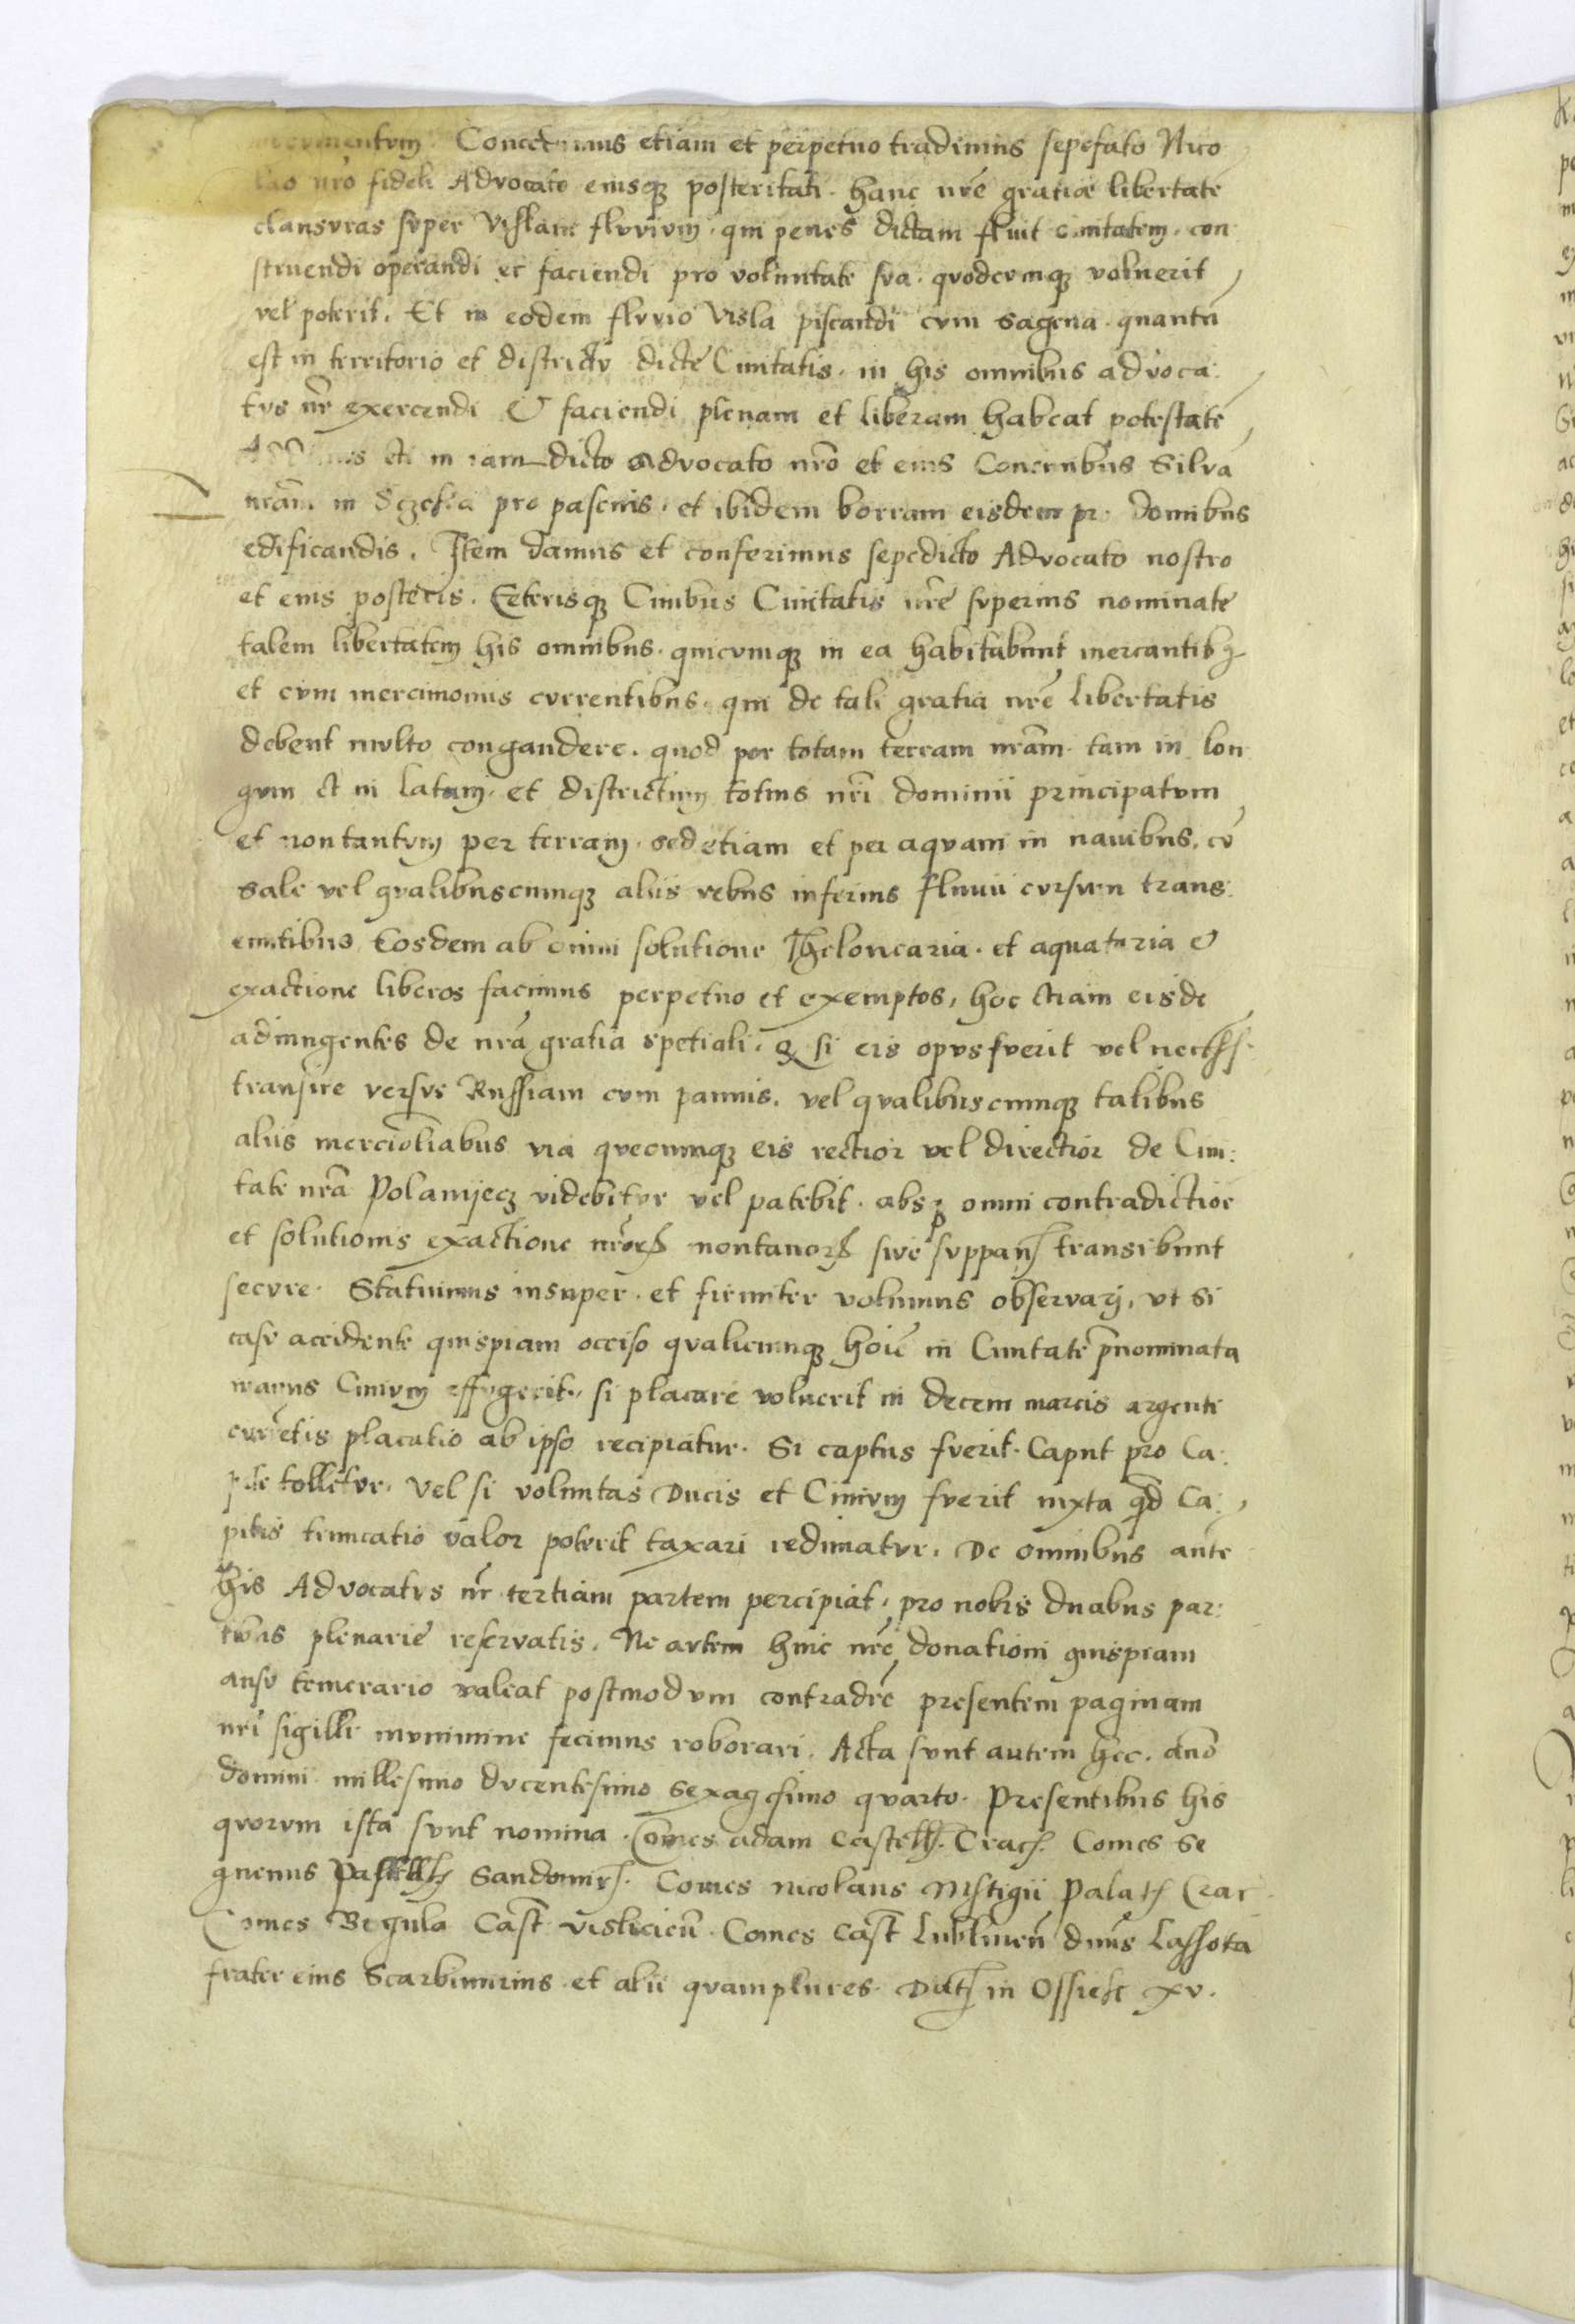 Concedimus etiam et perpetuo tradimus sepefato Nico
lao nrō fideli Advocato eiusqȝ posteritati. hanc nrē gratiæ libertatē
clausuras super Vislam fluvium. qui penes dictam fluit civitatem. con
struendi operandi et faciendi pro voluntate sua. quodcumqȝ voluerit
vel poterit. Et in eodem fluvio Visla piscandi cum sagena. quantū
est in territorio et districtu dicte Civitatis. in his omnibus advoca:
tus nr̄ exercendi & faciendi plenam et liberam habeat potestatē
eti in iam dicto Advocato nrō et eius Concivibus Silva
nrām in pro pascuis. et ibidem borram eisdem pr. domibus
edificandis. Item damus et conferimus sepedicto Advocato nostro
et eius posteris. Ceterisqȝ Civibus Civitatis nrē superius nominate
talem libertatem his omnibus. quicumqȝ in ea habitabunt mercantibȝ
et cum mercimoniis currentibus. qui de tali gratia nrē libertatis
debent multo congaudere. quod per totam terram nrām. tam in lon
gum et in latum. et districtum totius nrī dominii principatum
et non tantum per terram. sed etiam et per aquam in navibus. cū
sale vel qualibuscumqȝ aliis rebus inferius fluvii cursum trans:
euntibus Eosdem ab omni solutione Theloncaria. et aquataria &
exactione liberos facimus perpetuo et exemptos, hoc etiam eisdē
adiungentes de nrā gratia spetiali. qȝ si eis opus fuerit vel necesse.
transire versus Russiam cum pannis. vel qualibuscumqȝ talibus
aliis mercioliabus via quecumqȝ eis rectior vel directior de Civi:
tate nrā Polanyecz videbitur vel patebit. absqȝ omni contradictiōe
et solutionis exactione nrōrȝ montanorȝ sive suppan transibunt
secure. Statuimus insuper. et firmiter volumus observarj. ut si
casu accidente quispiam occiso qualicumqȝ hoīe in Civitate p̄nominata
manus Civium effugerit. si placare voluerit in decem marcis argenti
currētis placatio ab ipso recipiatur. Si captus fuerit. Caput pro Ca:
pite tolletur. Vel si voluntas Ducis et Civium fuerit iuxta qd̄ Ca:
pitis truncatio valor poterit taxari redimatur. De omnibus autē
his Advocatus nr̄ tertiam partem percipiat. pro nobis duabus par:
tibus plenarie reservatis. Ne autem huic nrē donationi quispiam
ausu temerario valeat postmodum contradrē presentem paginam
nrī sigilli munimine fecimus roborari. Acta sunt autem hec. anō
domini millesimo ducentesimo sexagesimo quarto. Presentibus his
quorum ista sunt nomina. Comes adam Castell. Crac. Comes Se
gneuus Pastell Sandomir. Comes nicolaus Mstigii Palat Crac
Comes Begula Cast̄ visliciēn. Comes Cast̄ Lublinēn dnūs Lassota
frater eius Scarbimirius et alii quamplures. Dat in Ossiek xv.